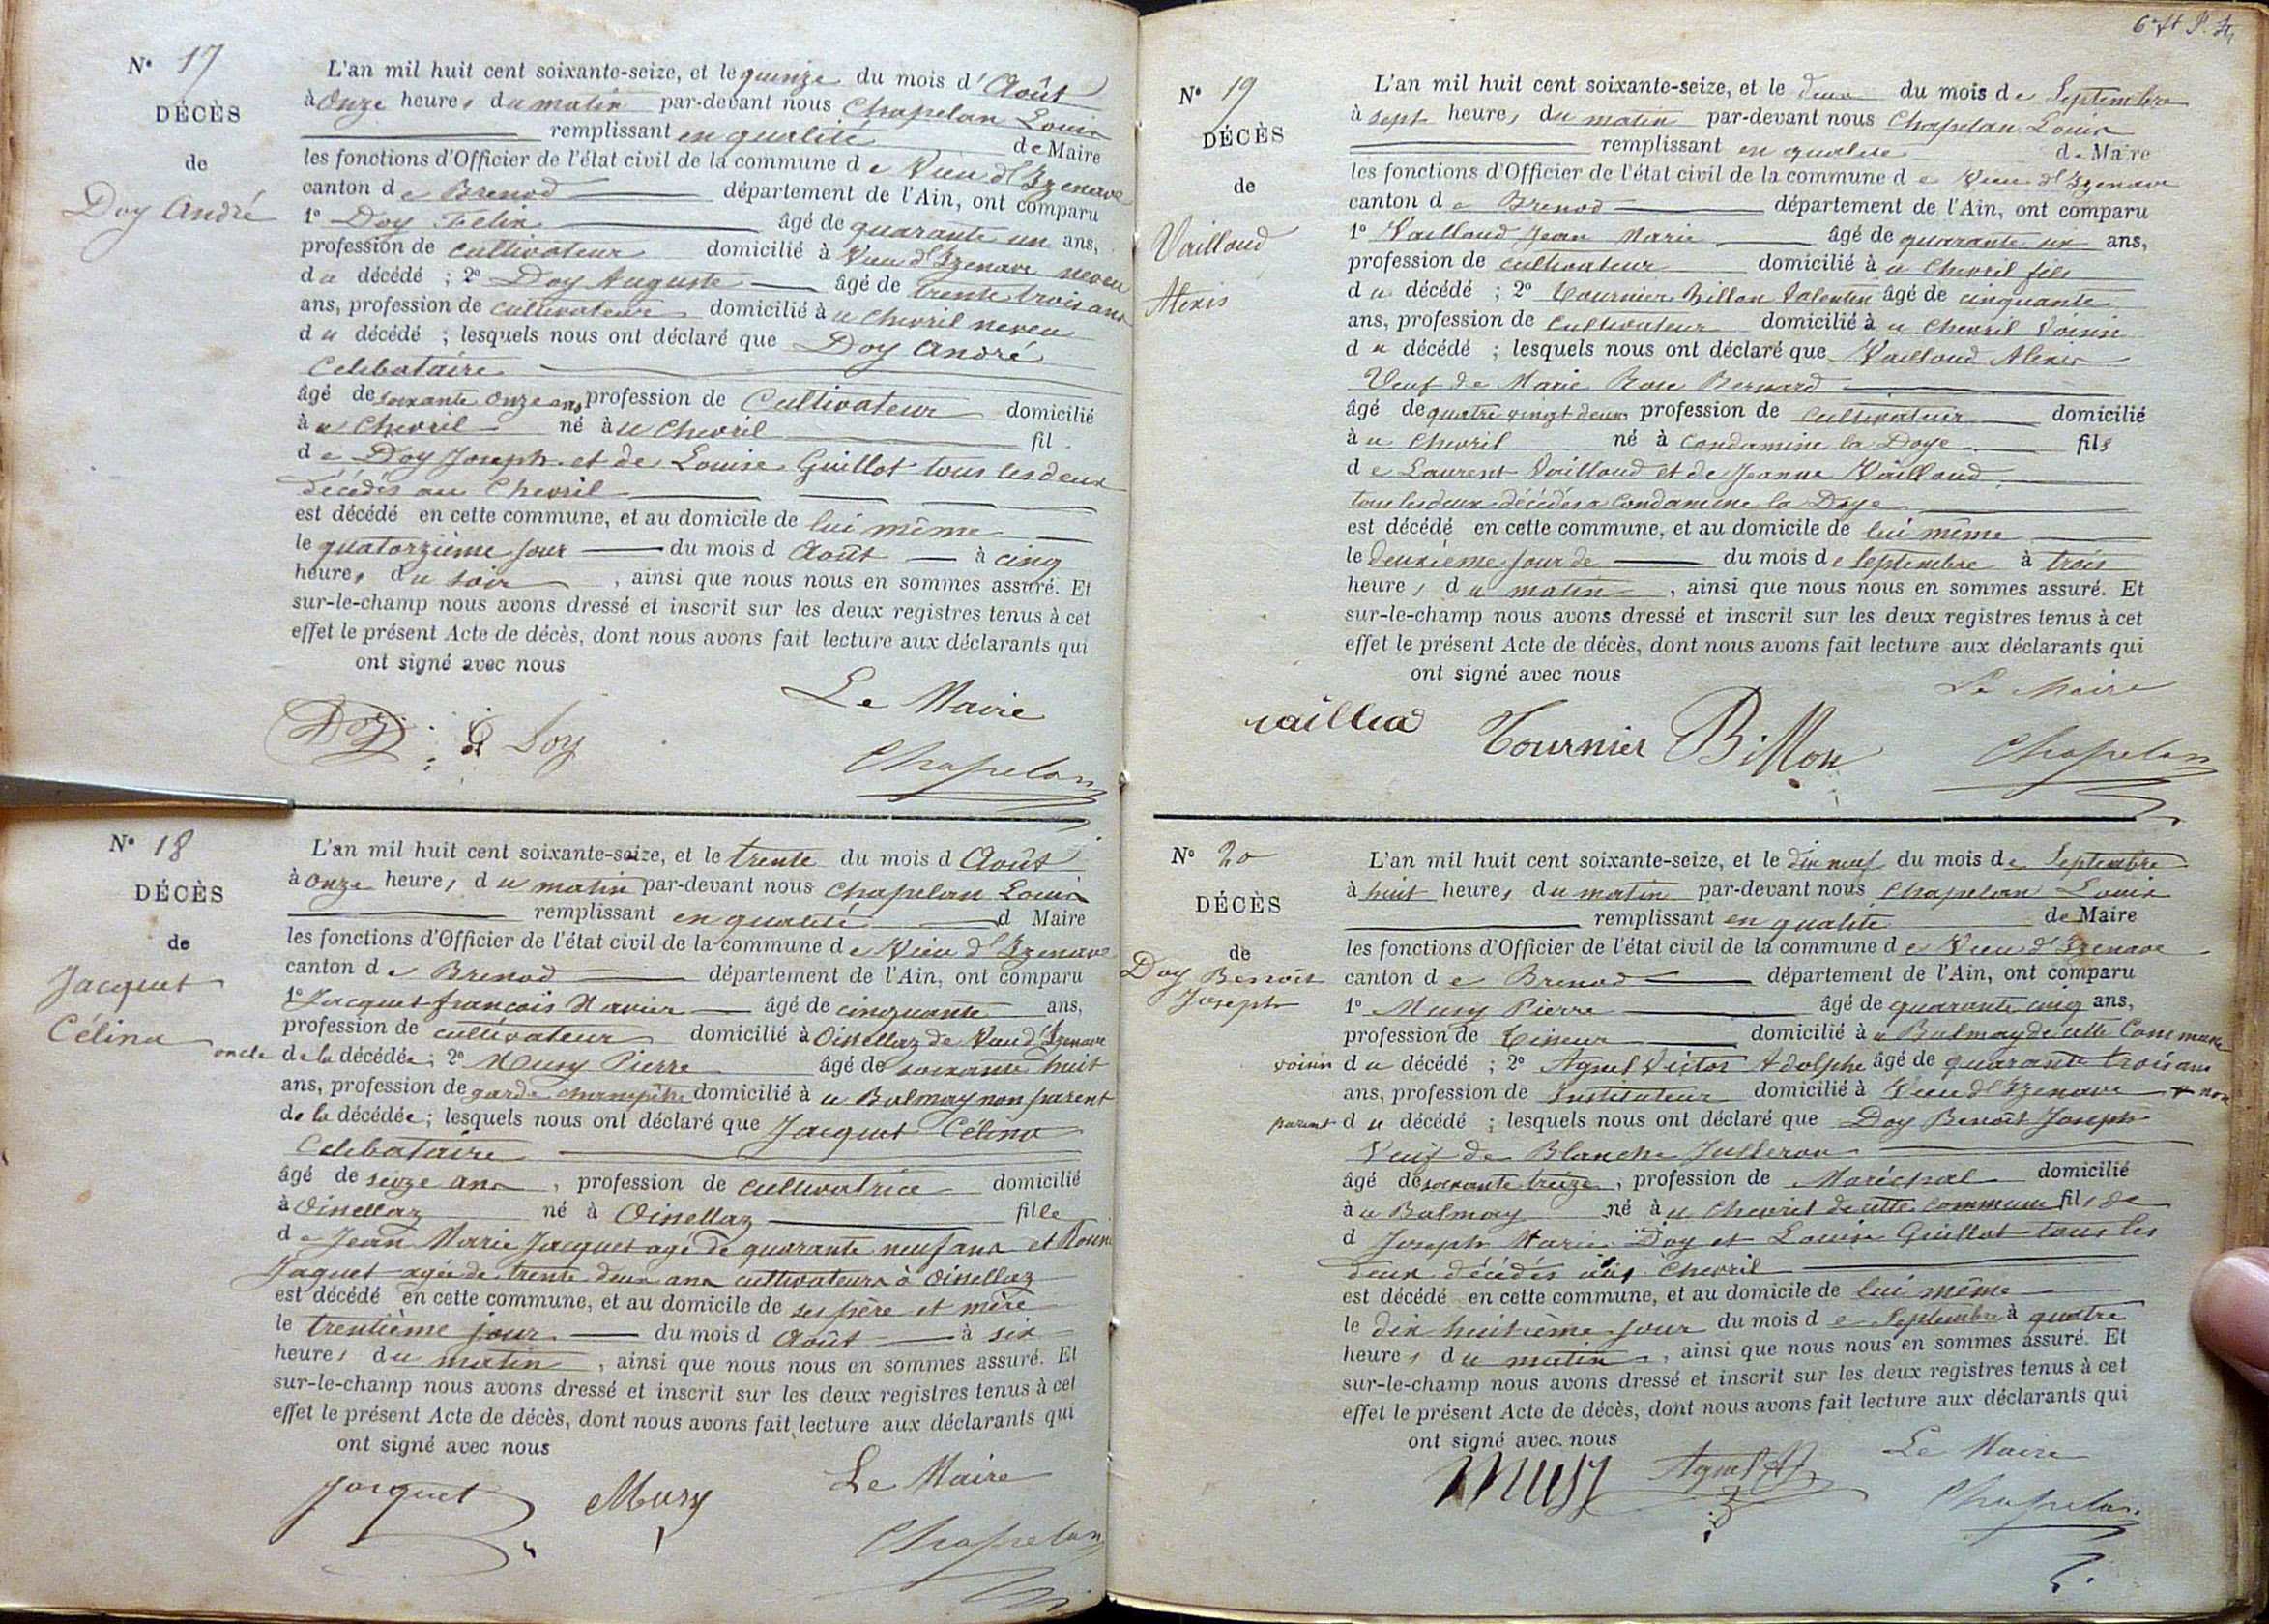 N° 17
DÉCÈS
de
Doy André
L'an mil huit cent soixante-seize, et le quinze du mois d'Août
à onze heures du matin par-devant nous Chapelan Louis
remplissant en qualité de Maire
les fonctions d'Officier de l'état civil de la commune de Vieu d'Izenave
canton de Brenod département de l'Ain, ont comparu
1° Doy Félix âgé de quarante un ans,
profession de cultivateur domicilié à Vieu d'Izenave neveu
du décédé ; 2° Doy Auguste âgé de trente trois ans
ans, profession de cultivateur domicilié à u Chevril neveu
du décédé ; lesquels nous ont déclaré que Doy André
Celibataire
âgé de soixante onze ans profession de Cultivateur domicilié
à u Chevril né à u Chevril fil
de Doy Joseph et de Louise Guillot tous les deux
décédés au Chevril
est décédé en cette commune, et au domicile de lui même
le quatorzième jour du mois d Août à cinq
heures du soir, ainsi que nous nous en sommes assuré. Et
sur-le-champ nous avons dressé et inscrit sur les deux registres tenus à cet
effet le présent Acte de décès, dont nous avons fait lecture aux déclarants qui
ont signé avec nous
Le Maire
Doy Doy
Chapelan
N° 18
DÉCÈS
de
Jacquet
Célina
L'an mil huit cent soixante-seize, et le trente du mois d Août
à onze heures du matin par-devant nous Chapelan Louis
remplissant en qualité d Maire
les fonctions d'Officier de l'état civil de la commune de Vieu d'Izenave
canton de Brenod département de l'Ain, ont comparu
1° Jacquet françois Xavier âgé de cinquante ans,
profession de cultivateur domicilié à Oisellaz de d'Izenave
oncle de la décédée ; 2° Musy Pierre âgé de soixante huit
ans, profession de garde champêtre domicilié à u Balmay non parent
de la décédée ; lesquels nous ont déclaré que Jacquet Célina
Celibataire
âgé de seize ans, profession de cultivatrice domicilié
à Oisellaz né à Oisellaz fille
de Jean Marie Jacquet agé de quarante neuf ans et
Jaquet agée de trente deux ans cultivateurs à Oisellaz
est décédé en cette commune, et au domicile de ses père et mère
le trentième jour du mois d Août à six
heures du matin, ainsi que nous nous en sommes assuré. Et
sur-le-champ nous avons dressé et inscrit sur les deux registres tenus à cet
effet le présent Acte de décès, dont nous avons fait lecture aux déclarants qui
ont signé avec nous
Le Maire
Jacquet Musy
Chapelan
N° 19
DÉCÈS
de
Vailloud
Alexis
L'an mil huit cent soixante-seize, et le deux du mois de Septembre
à sept heures du matin par-devant nous Chapelan Louis
remplissant en qualité de Maire
les fonctions d'Officier de l'état civil de la commune de Vieu d'Izenave
canton de Brenod département de l'Ain, ont comparu
1° Vailloud Jean Marie âgé de quarante six ans,
profession de cultivateur domicilié à u Chevril fils
du décédé ; 2° Tournier Billon Valentin âgé de cinquante
ans, profession de Cultivateur domicilié à u Chevril voisin
du décédé ; lesquels nous ont déclaré que Vailloud Alexis
Veuf de Marie Rose Bernard
âgé de quatre vingt deux profession de cultivateur domicilié
à u Chevril né à Condamine la Doye fils
de Laurent Vailloud et de Jeanne Vailloud
tous les deux décédés a Condamine la Doye
est décédé en cette commune, et au domicile de lui même
le deuxième jour de du mois de Septembre à trois
heures du matin, ainsi que nous nous en sommes assuré. Et
sur-le-champ nous avons dressé et inscrit sur les deux registres tenus à cet
effet le présent Acte de décès, dont nous avons fait lecture aux déclarants qui
ont signé avec nous
Le Maire
Tournier Billon
Chapelan
N° 20
DÉCÈS
de
Doy Benoit
Joseph
L'an mil huit cent soixante-seize, et le dix neuf du mois de Septembre
à huit heures du matin par-devant nous Chapelan Louis
remplissant en qualité de Maire
les fonctions d'Officier de l'état civil de la commune de Vieu d'Izenave
canton de Brenod département de l'Ain, ont comparu
1° Musy Pierre âgé de quarante cinq ans,
profession de domicilié à u Balmay de cette Commune
voisin du décédé ; 2° Agnel Victor Adolphe âgé de quarante trois ans
ans, profession de Instituteur domicilié à Vieu d'Izenave non
parent du décédé ; lesquels nous ont déclaré que Doy Benoit Joseph
Veuf de Blanche Julleron
âgé de soixante treize, profession de Maréchal domicilié
à u Balmay né à u Chevril de cette commune fils de
d Joseph Marie Doy et Louise Guillot tous les
deux décédés au Chevril
est décédé en cette commune, et au domicile de lui même
le dix huitième jour du mois de Septembre à quatre
heures du matin, ainsi que nous nous en sommes assuré. Et
sur-le-champ nous avons dressé et inscrit sur les deux registres tenus à cet
effet le présent Acte de décès, dont nous avons fait lecture aux déclarants qui
ont signé avec nous
Le Maire
Musy Agnel
Chapelan